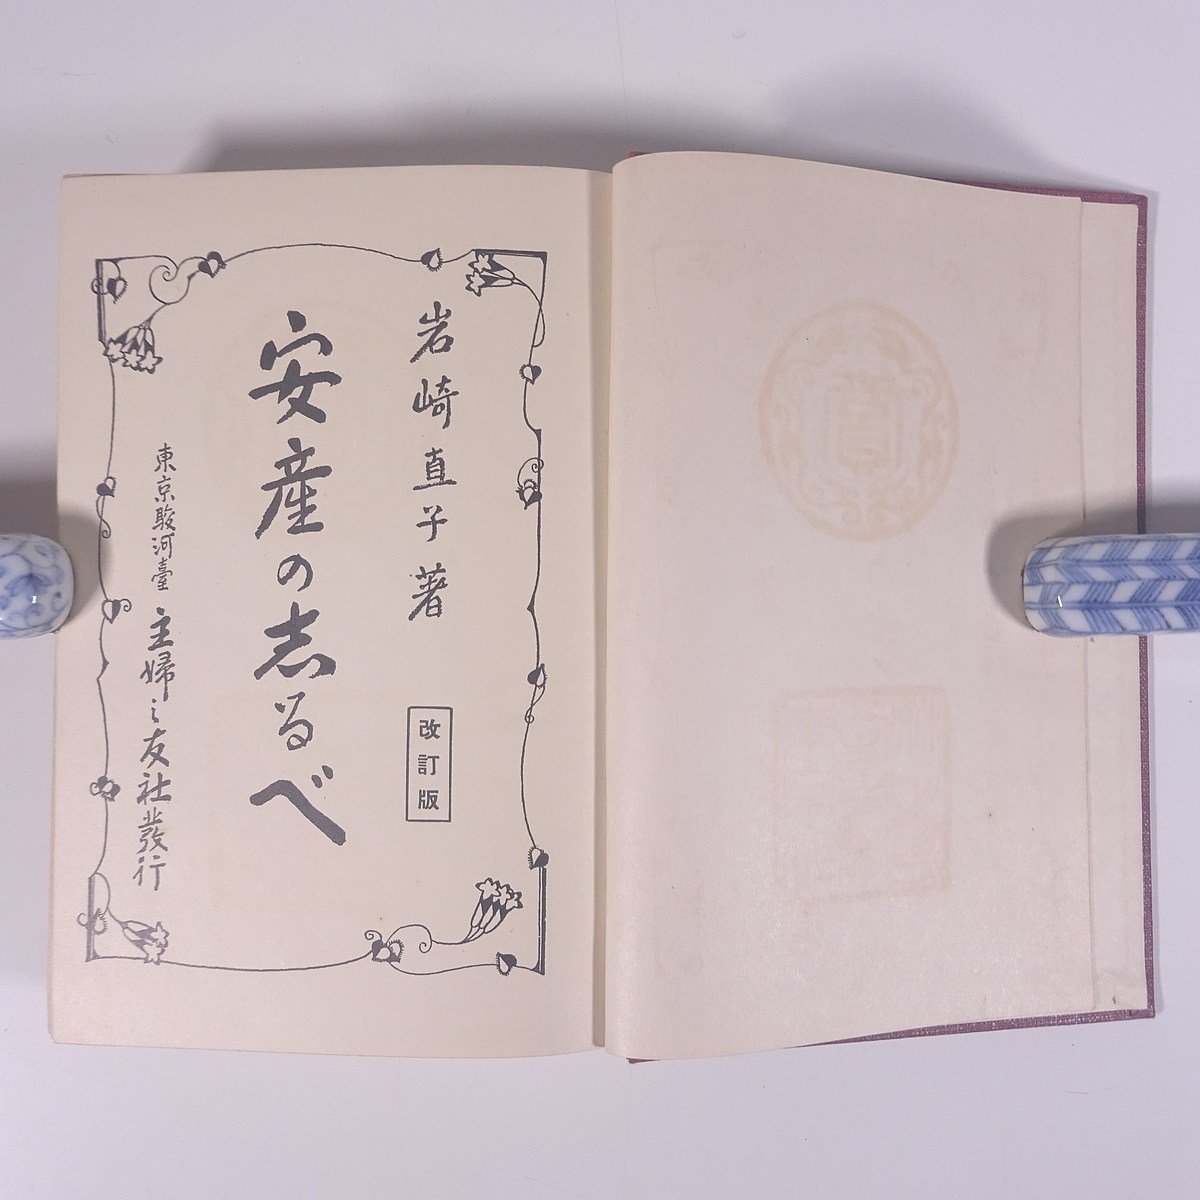 岩崎直子著
改訂版
安産の志るべ
東京駿河臺 主婦之友社發行